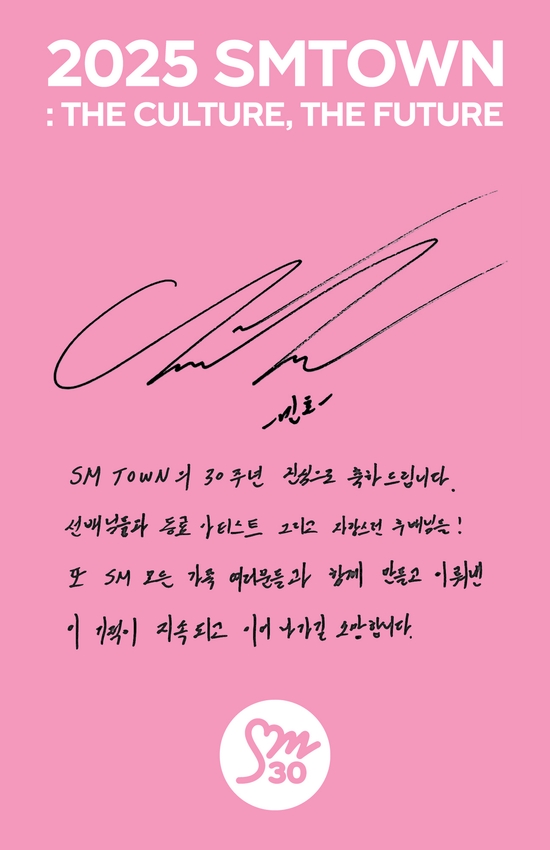 2025 SMTOWN
: THE CULTURE, THE FUTURE
-민호-
SM TOWN의 30주년 진심으로 축하드립니다.
선배님들과 동료 아티스트 그리고 자랑스런 후배님들!
또 SM 모든 가족 여러분들과 함께 만들고 이뤄낸
이 기적이 지속되고 이어나가길 소망합니다.
Sm
30